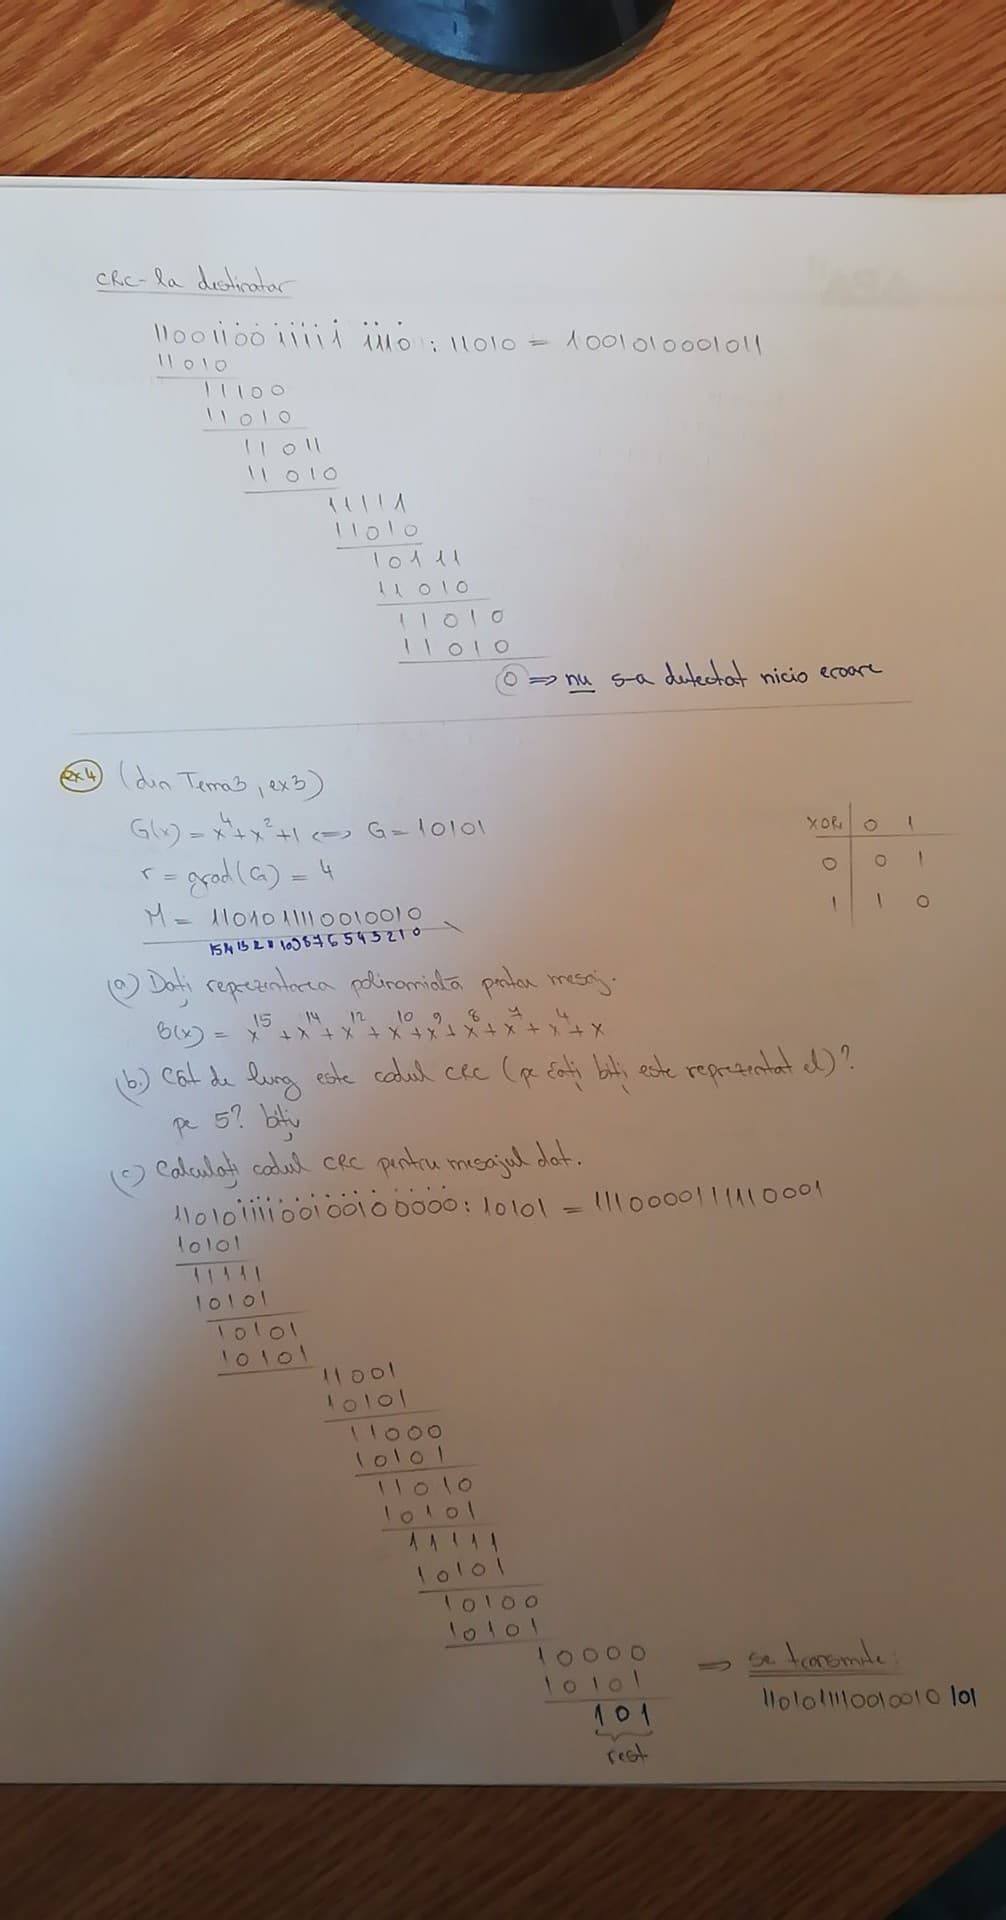 CRC-la destinatar
11001100111111110 : 11010 = 1001010001011
11010
11100
11010
11011
11010
11111
11010
10111
11010
11010
11010
0 => nu s-a detectat nicio eroare
ex4 (din Tema3, ex3)
G(x) = x⁴+x²+1 <=> G = 10101
r = grad(G) = 4
XOR 0 1
0 0 1
1 1 0
M = 1101011110010010
15 14 13 12 11 10 9 8 7 6 5 4 3 2 1 0
(a) Dați reprezentarea polinomială pentru mesaj.
B(x) = x¹⁵ + x¹⁴ + x¹² + x¹⁰ + x⁹ + x⁸ + x⁷ + x⁴ + x
(b) Cât de lung este codul CRC (pe câți biți este reprezentat el)?
pe 5? biți
(c) Calculați codul CRC pentru mesajul dat.
11010111100100100000 : 10101 = 1110000111110001
10101
11111
10101
10101
10101
11001
10101
11000
10101
11010
10101
11111
10101
10100
10101
10000
10101
101
rest
=> se transmite:
1101011110010010 101